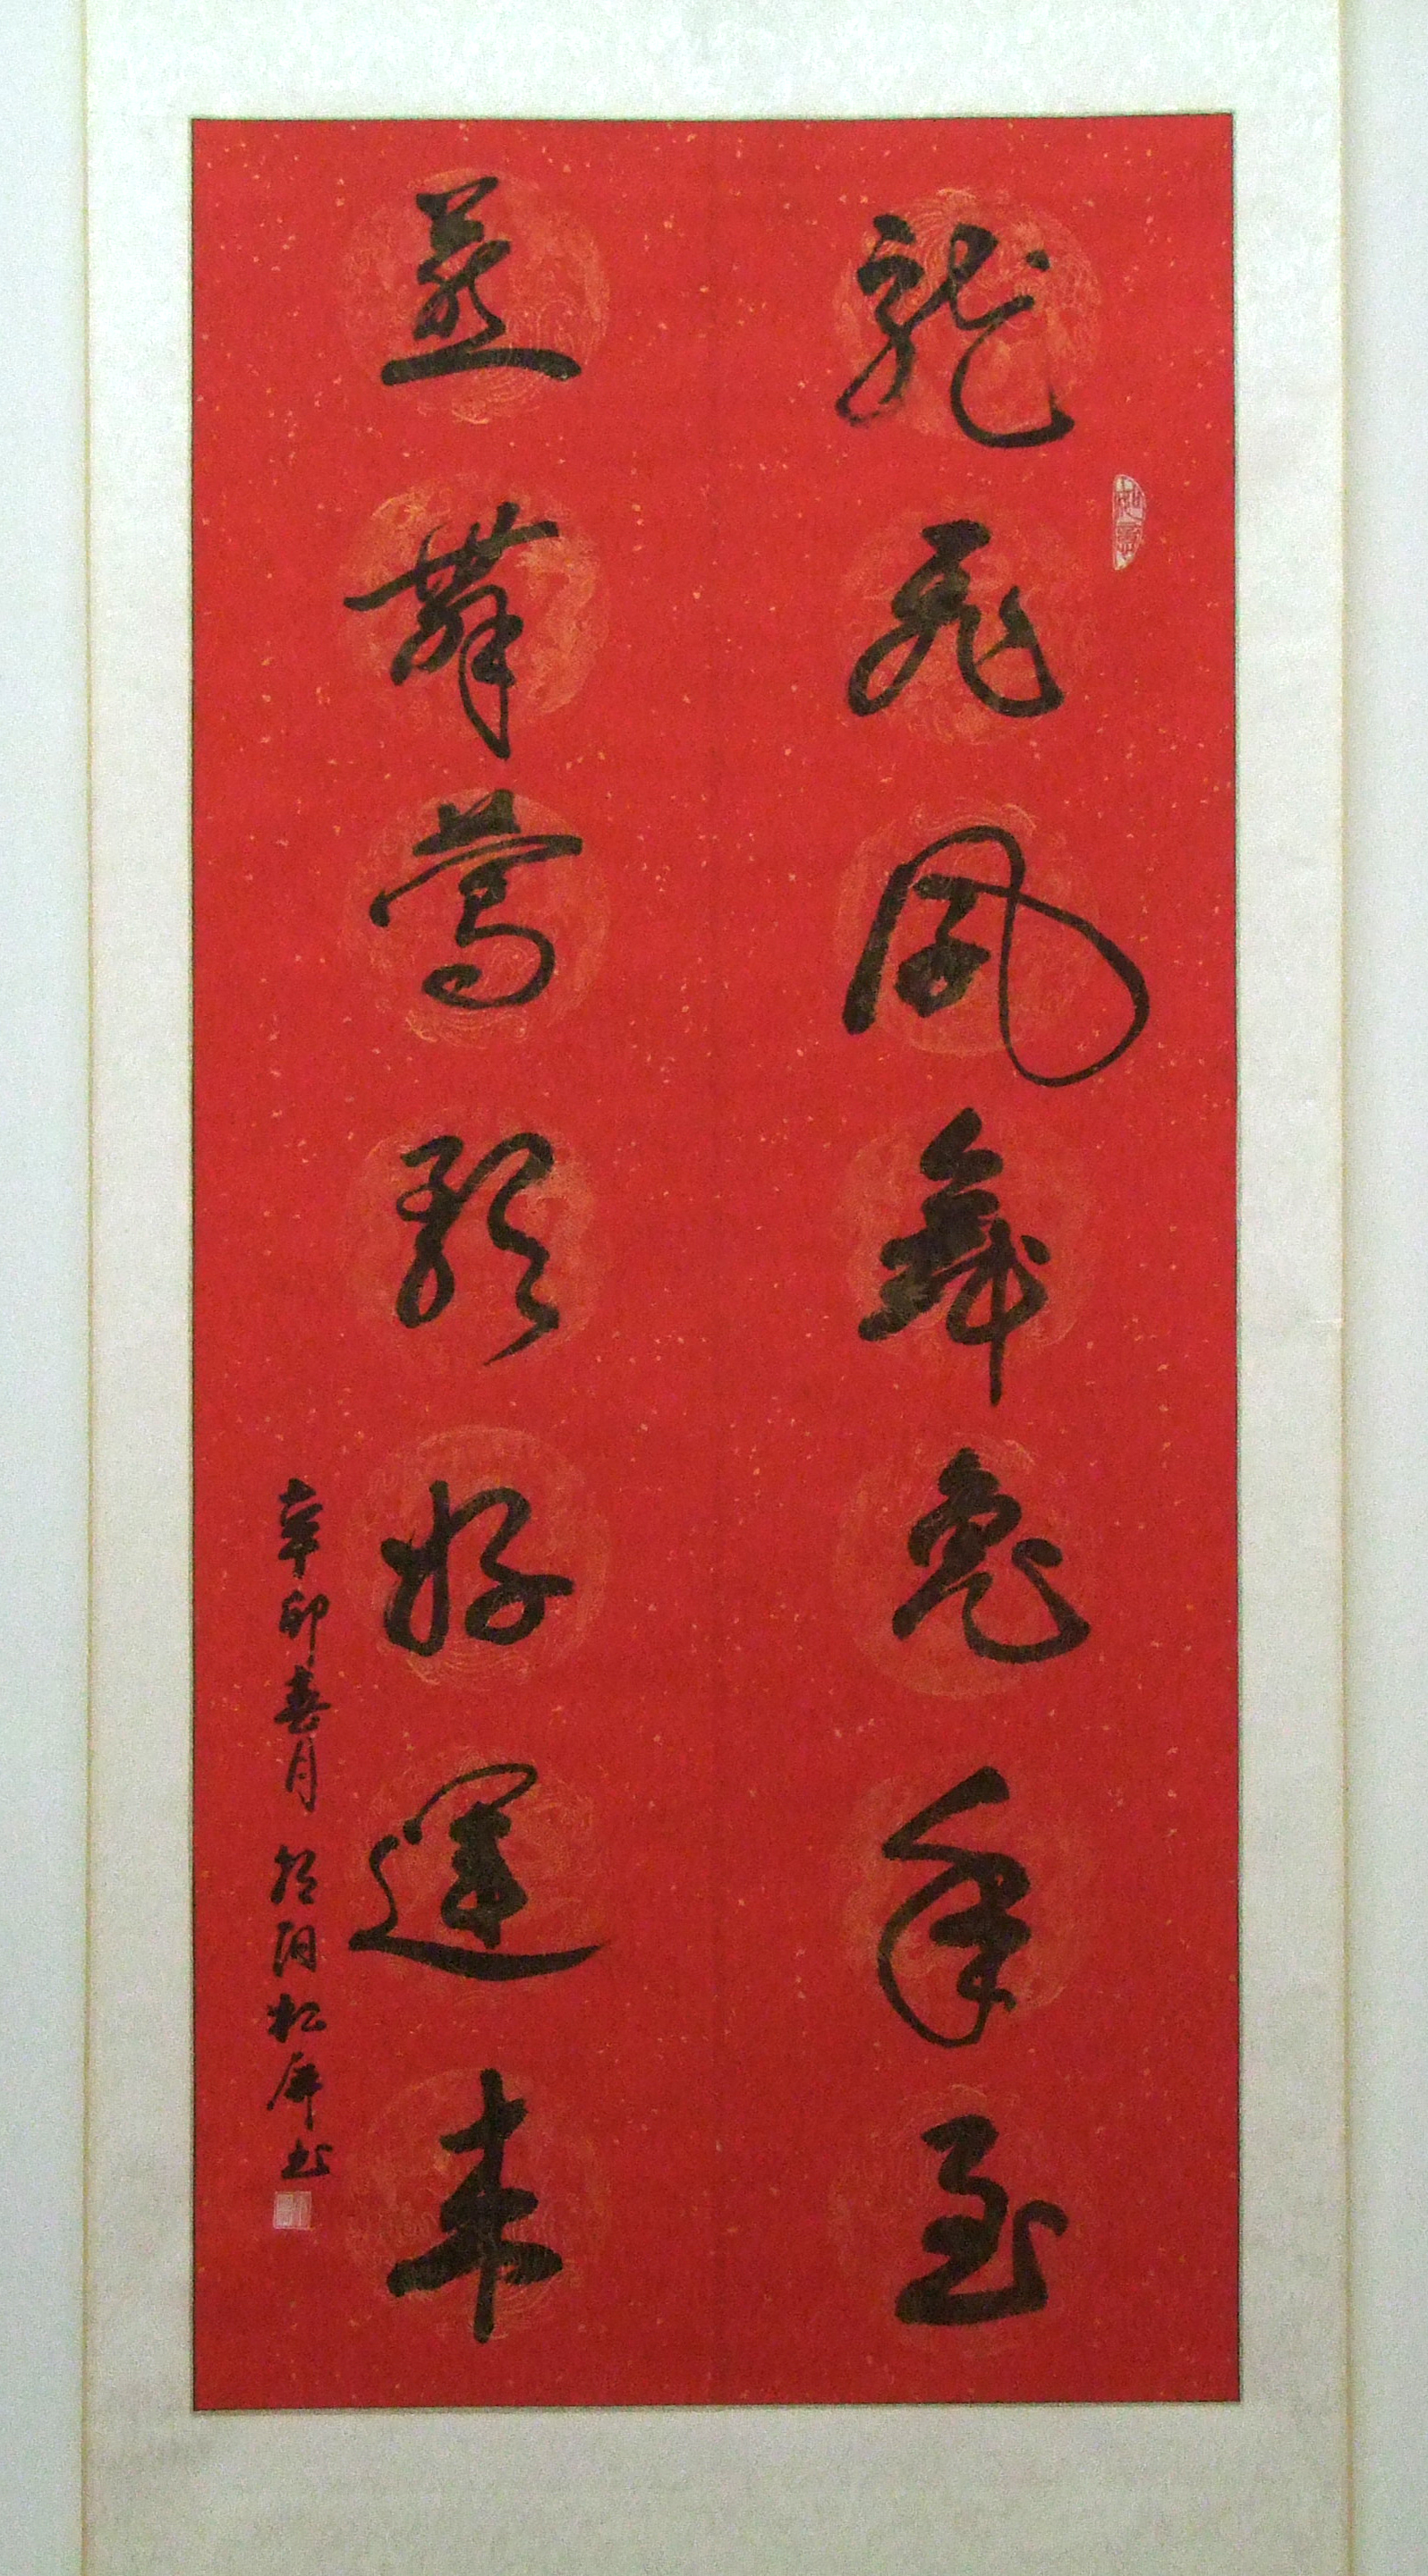 龍飛鳳舞兔年至
燕舞鶯歌好運來
辛卯春月 饶阳松屏书